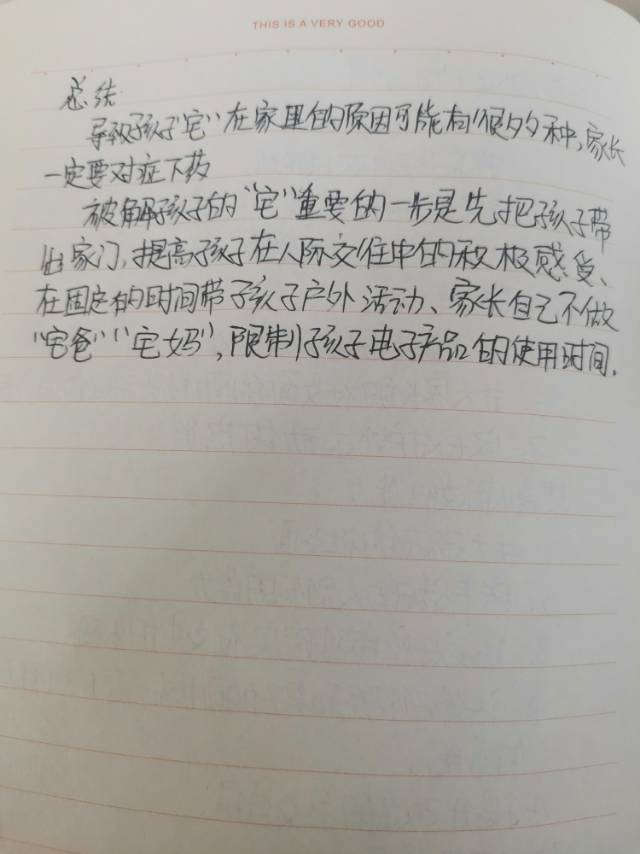 THIS IS A VERY GOOD
总结
导致孩子"宅"在家里的原因可能有很多种,家长
一定要对症下药
破解孩子的"宅"重要的一步是先把孩子带
出家门,提高孩子在人际交往中的积极感受、
在固定的时间带孩子户外活动、家长自己不做
"宅爸""宅妈",限制孩子电子产品的使用时间.